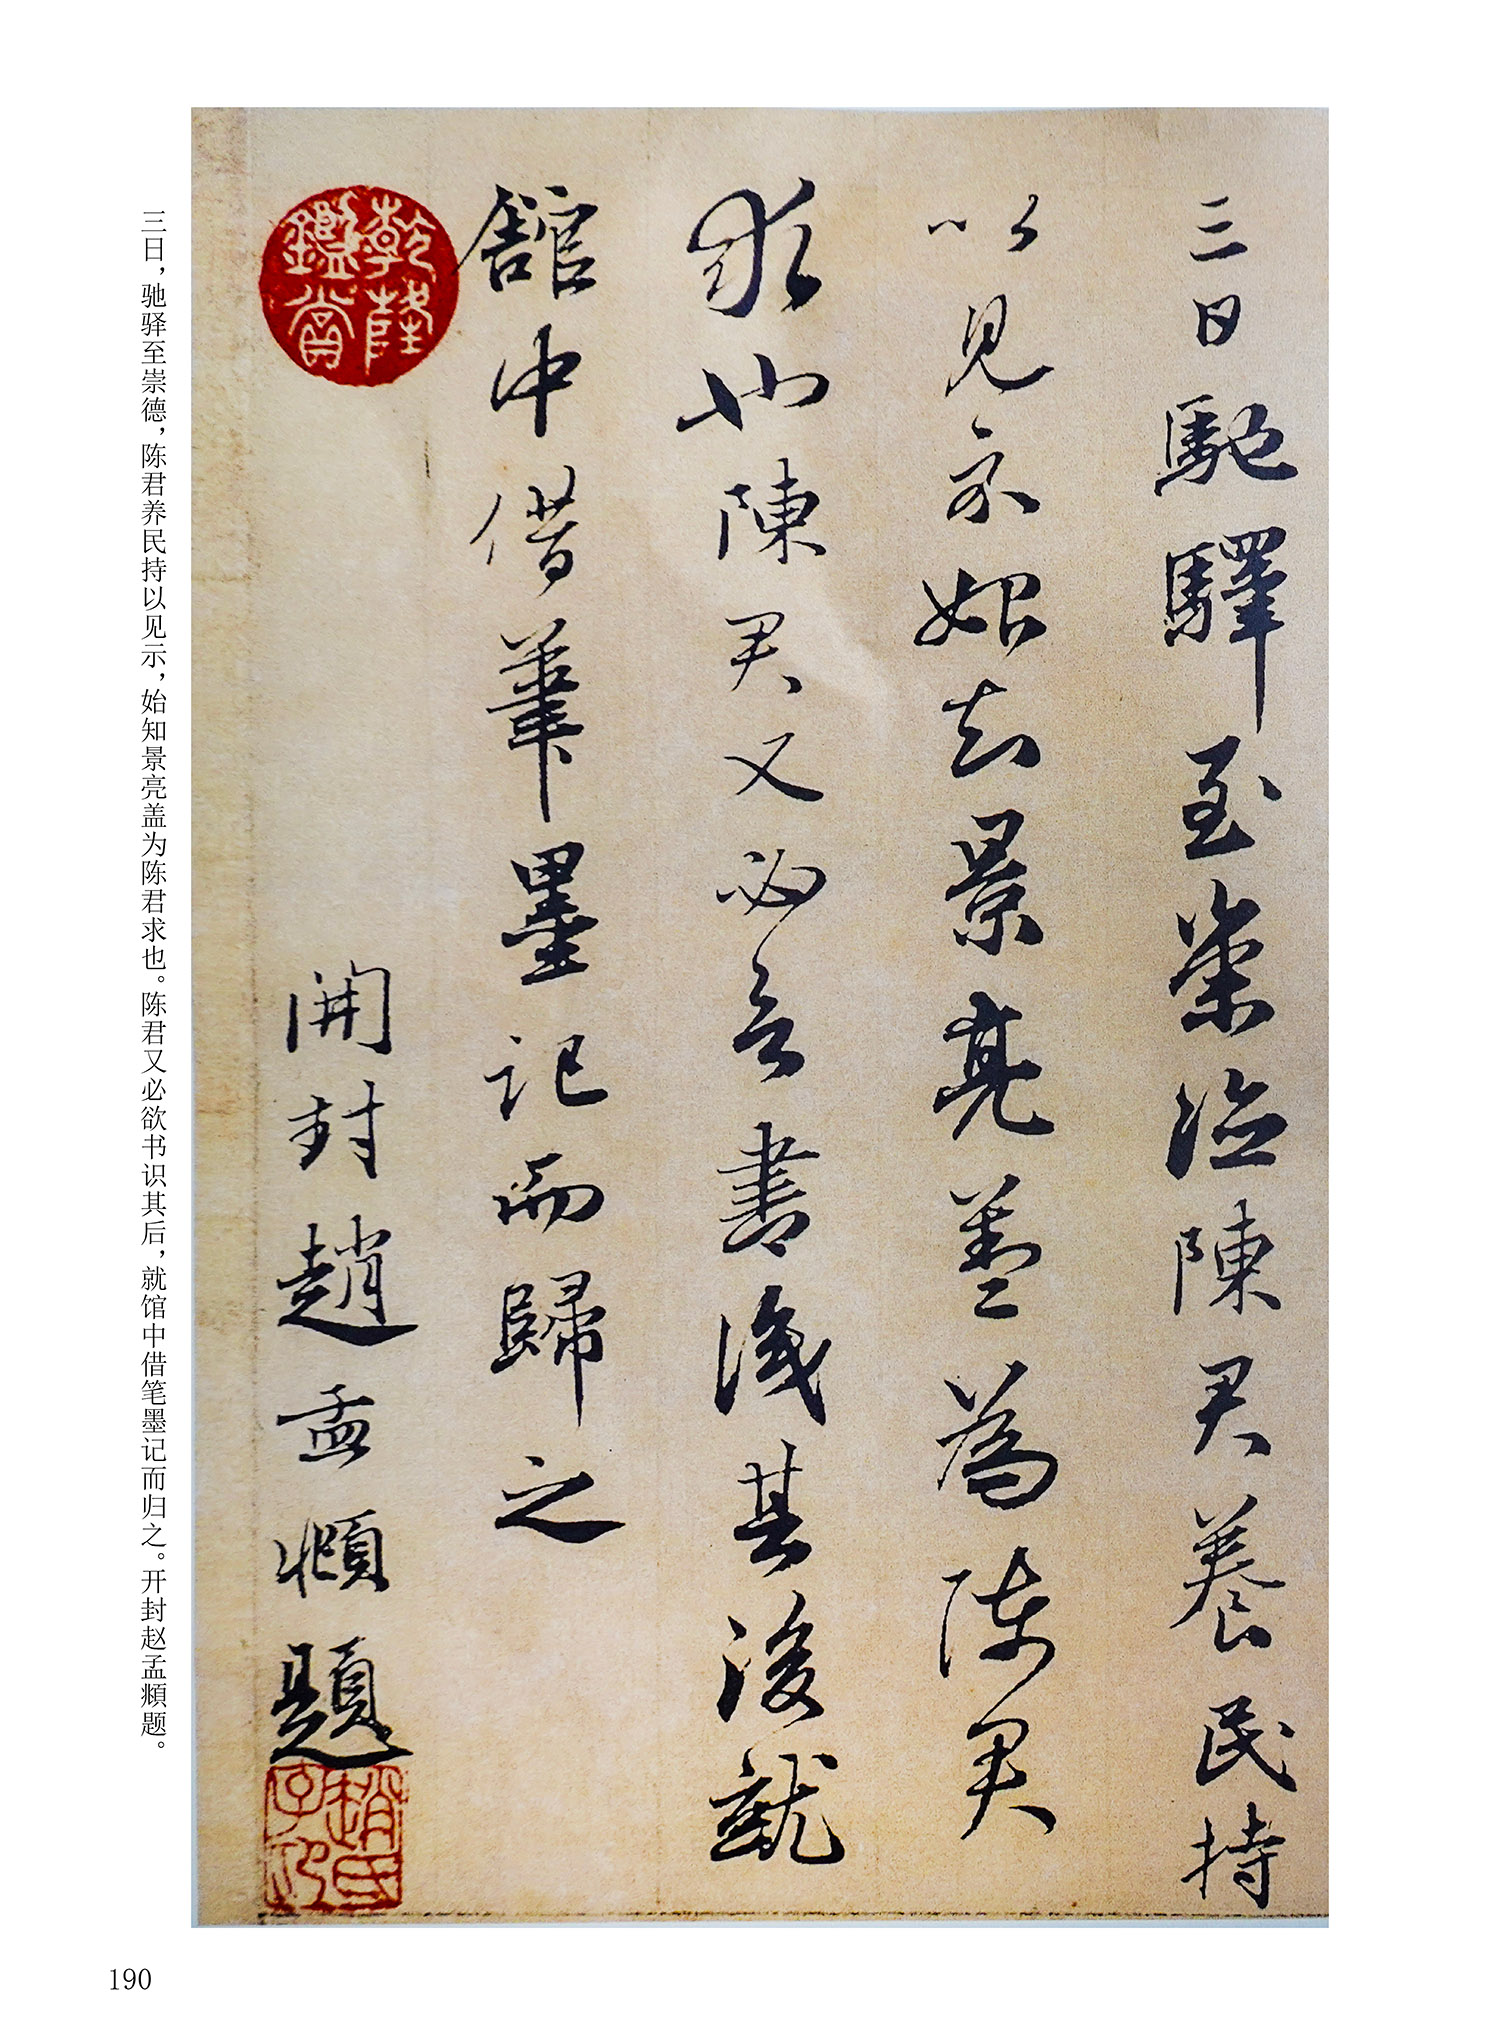 三日馳驛至崇德陳君養民持
以見示始知景亮蓋為陳君
求也陳君又必書識其後就
舘中借筆墨記而歸之
開封趙孟頫題
乾隆鑑賞
趙氏子昂
三日，驰驿至崇德，陈君养民持以见示，始知景亮盖为陈君求也。陈君又必欲书识其后，就馆中借笔墨记而归之。开封赵孟頫题。
190